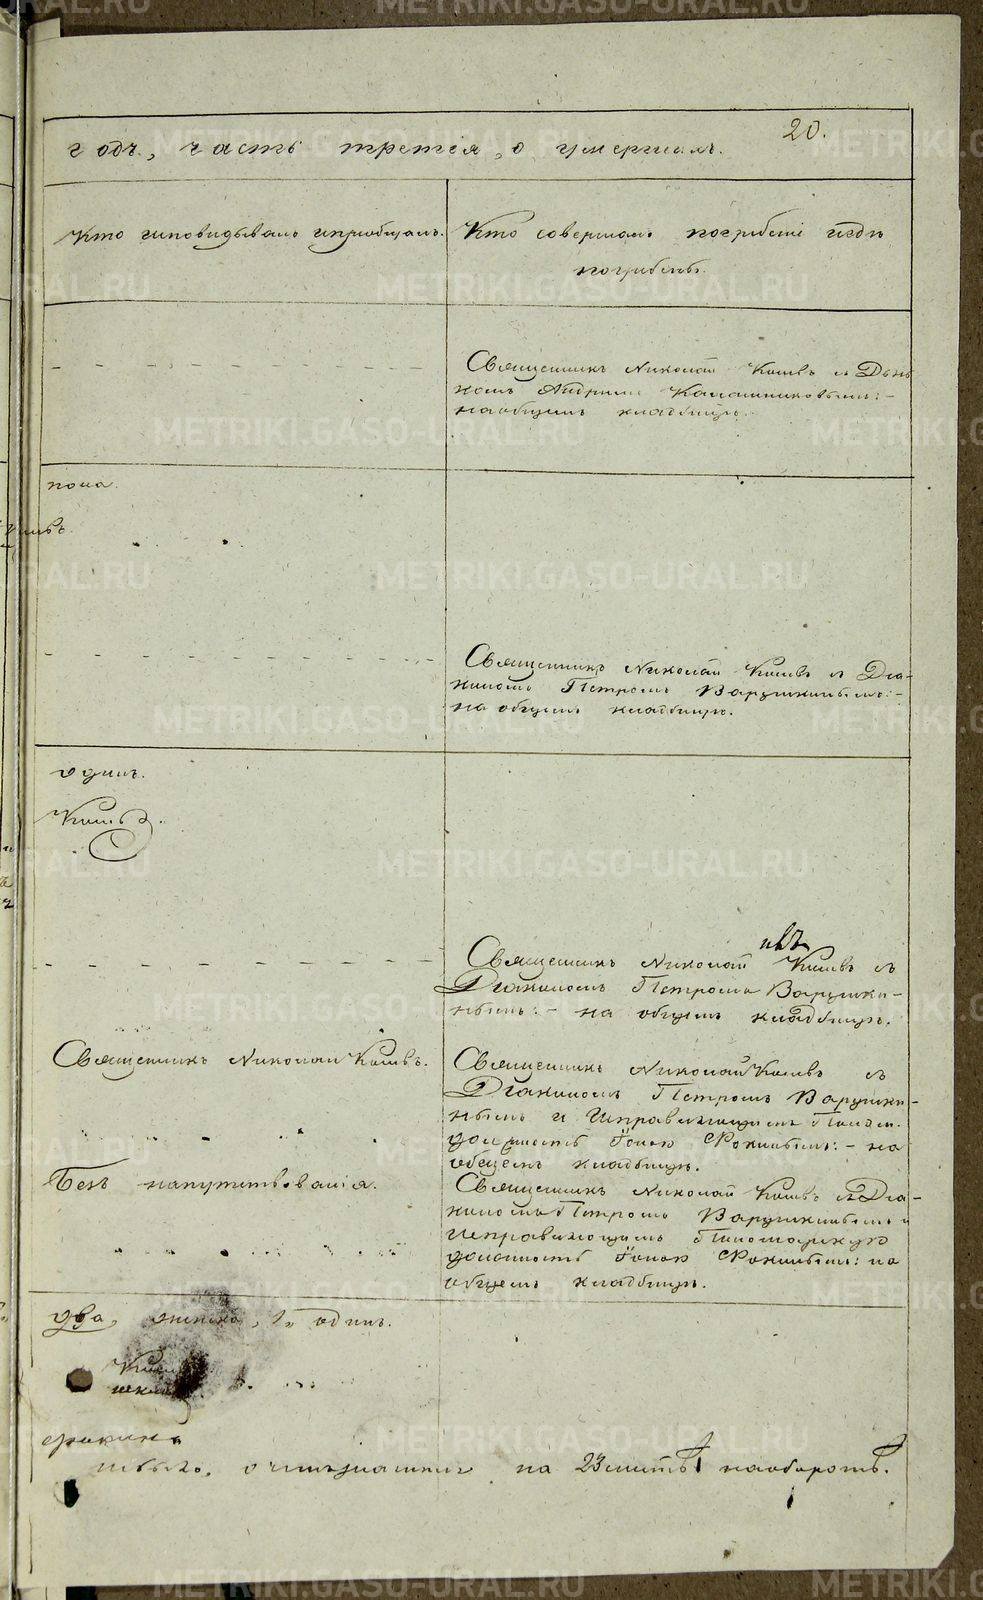 20.
годъ, часть третія, о умершихъ.
Кто исповѣдывалъ и пріобщалъ.
Кто совершалъ погребеніе и гдѣ
погребены.
Священникъ Николай Кошевъ съ Дья
кономъ Андреемъ Калашниковымъ:-
на общемъ кладбищѣ.
пола.
Священникъ Николай Кошевъ съ Діа-
кономъ Петромъ Варушкинымъ:-
на общемъ кладбищѣ.
одинъ.
Священникъ Николай Кошевъ съ
Діакономъ Петромъ Варушки-
нымъ:- на общемъ кладбищѣ.
Священникъ Николай Кошевъ.
Священникъ Николай Кошевъ съ
Діакономъ Петромъ Варушки-
нымъ и Исправляющимъ Поном.
должность Іоною Фокинымъ:- на
общемъ кладбищѣ.
Безъ напутствованія.
Священникъ Николай Кошевъ съ Діа-
кономъ Петромъ Варушкинымъ и
Исправляющимъ Пономарскую
должность Іоною Фокинымъ: на
общемъ кладбищѣ.
два, женска, 1. одинъ.
Фокинъ
на 23 листѣ на оборотѣ.
METRIKI.GASO-URAL.RU